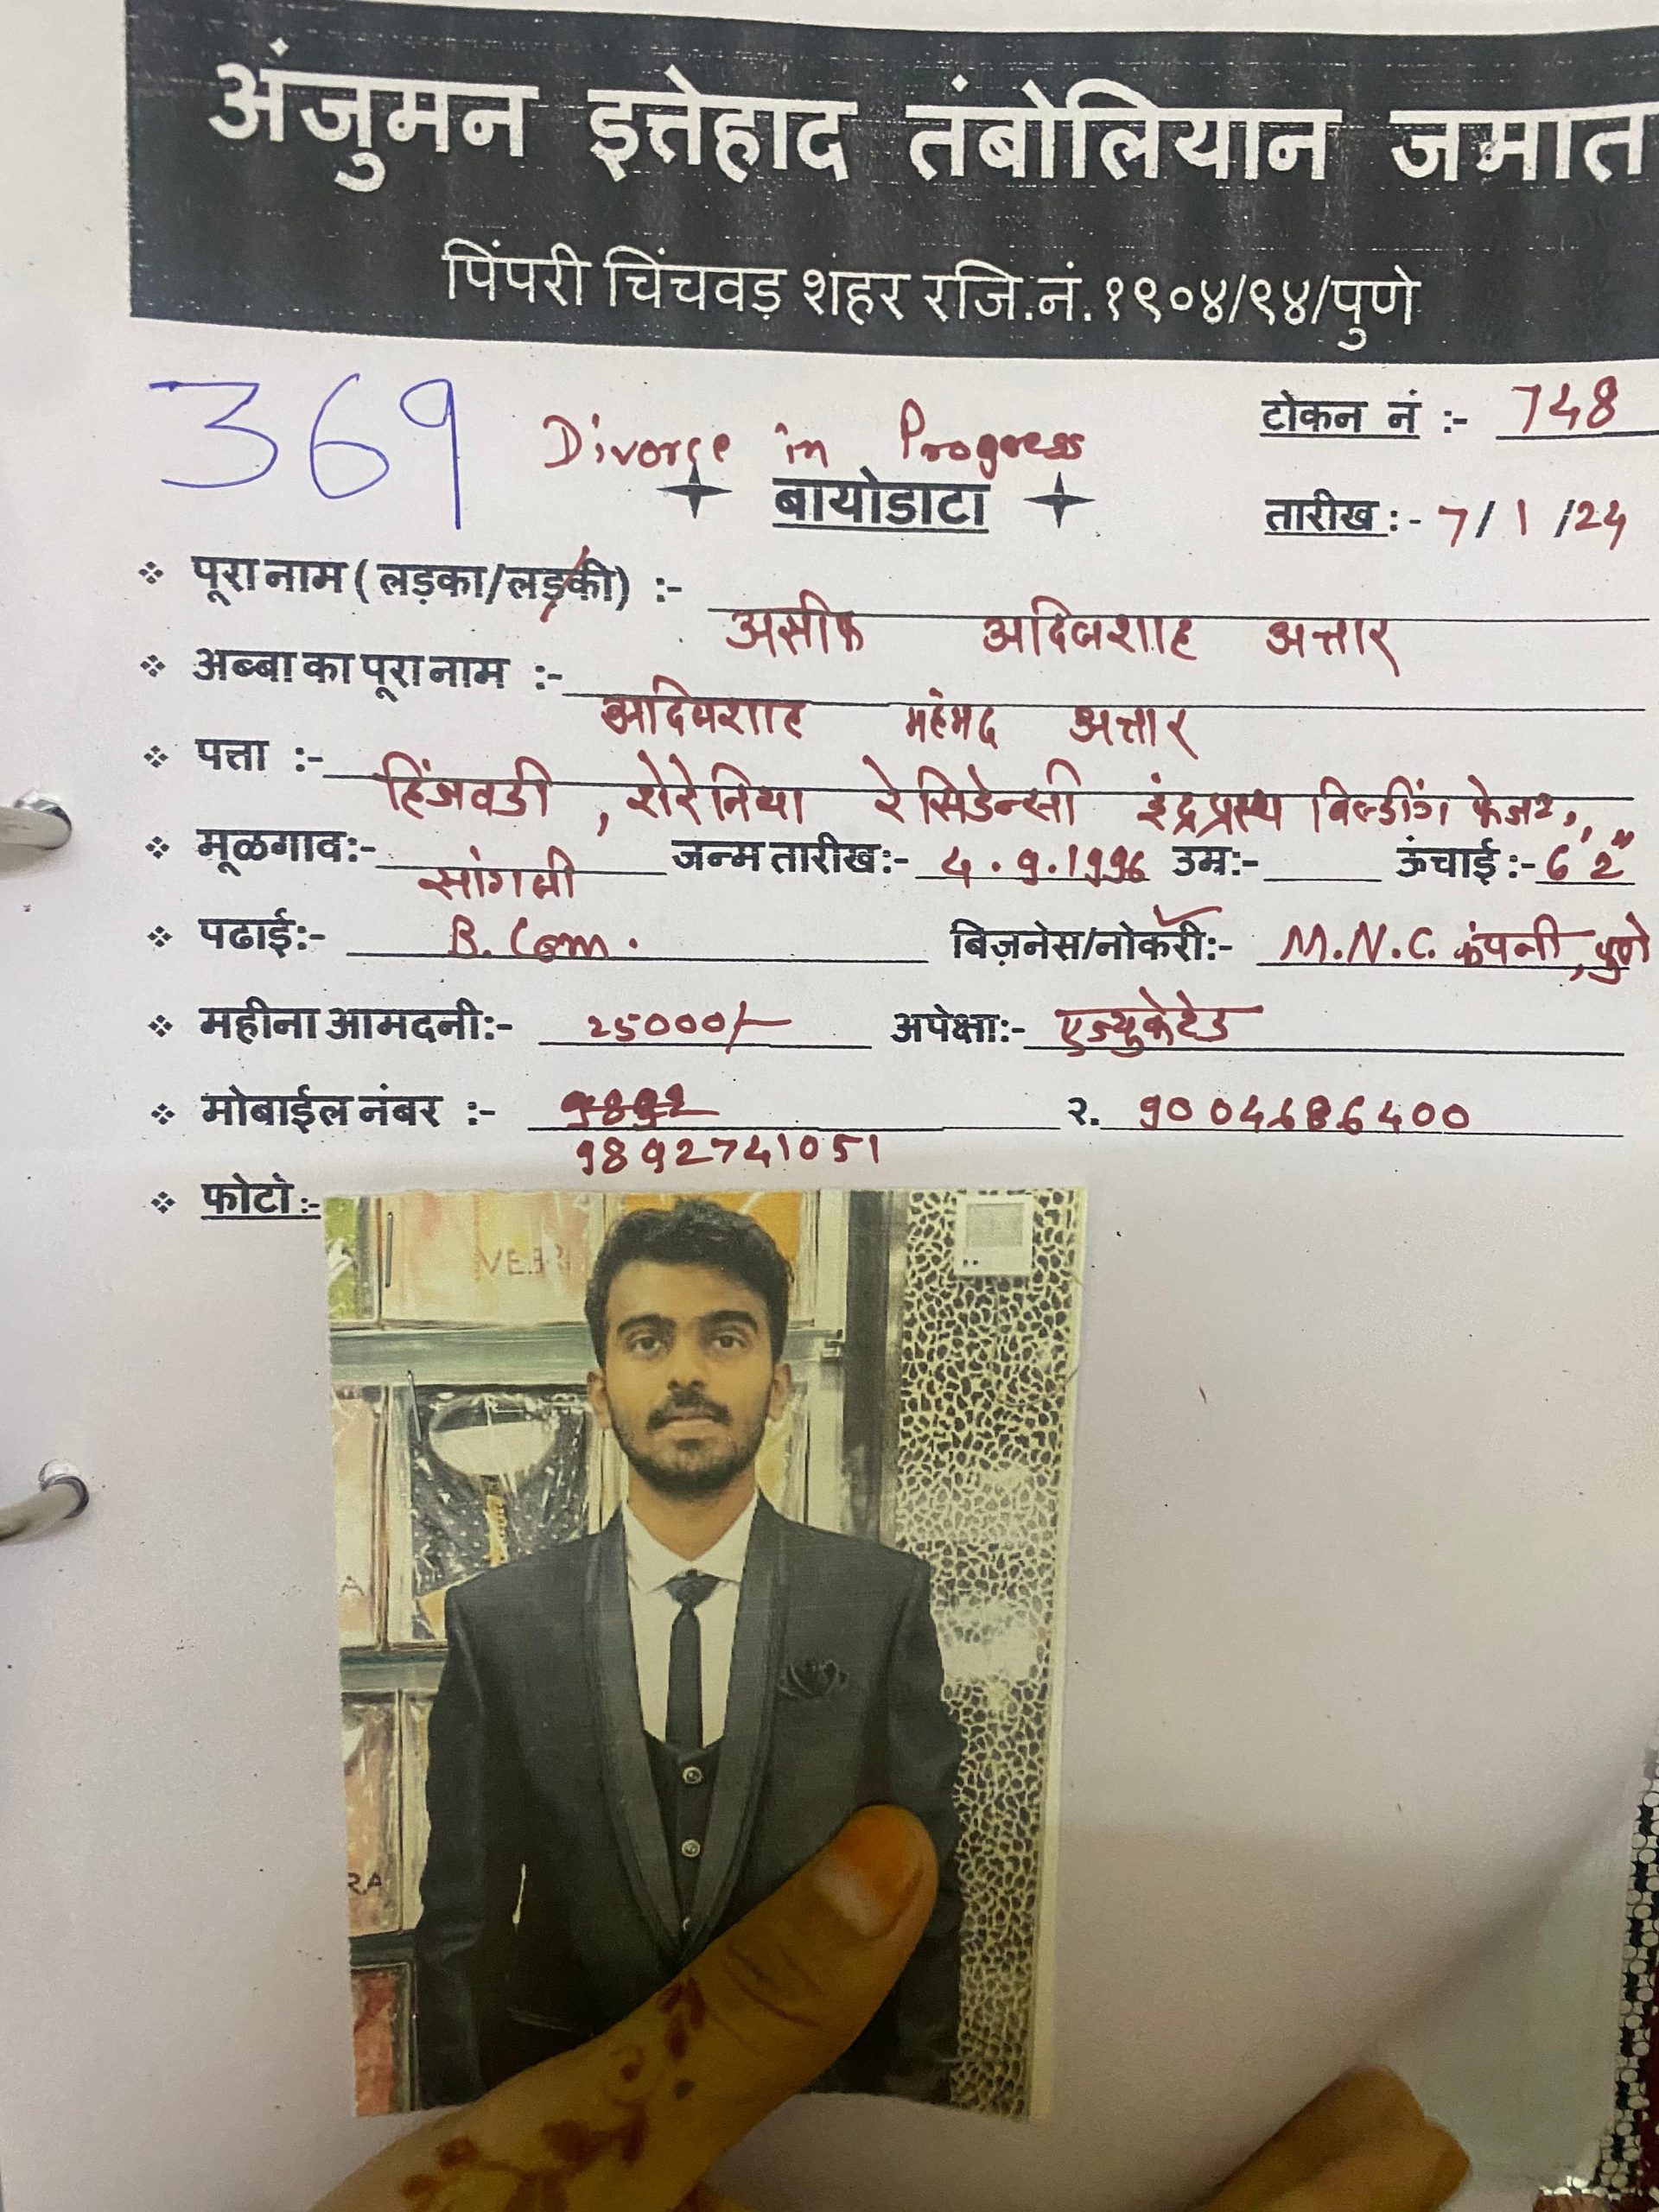 अंजुमन इत्तेहाद तंबोलियान जमात
पिंपरी चिंचवड़ शहर रजि.नं.१९०४/९४/पुणे
369
Divorce in Progress
टोकन नं :- 748
बायोडाटा
तारीख :- 7/1/24
पूरा नाम ( लड़का/लड़की) :- असीफ आदिलशाह अत्तार
अब्बा का पूरा नाम :- आदिलशाह महंमद अत्तार
पत्ता :- हिंजवडी , शेरेनिया रेसिडेन्सी इंद्रप्रस्थ बिल्डींग फेज२,
मूळगाव:- सांगली जन्म तारीख:- 4.9.1996 उम्र:- ऊंचाई :- 6'2"
पढाई:- B. Com. बिज़नेस/नोकरी:- M.N.C. कंपनी, पुणे
महीना आमदनी:- 25000/- अपेक्षा:- एज्युकेटेड
मोबाईल नंबर :- 9892 २. 9004686400
9892741051
फोटो :-
VE
A
RA